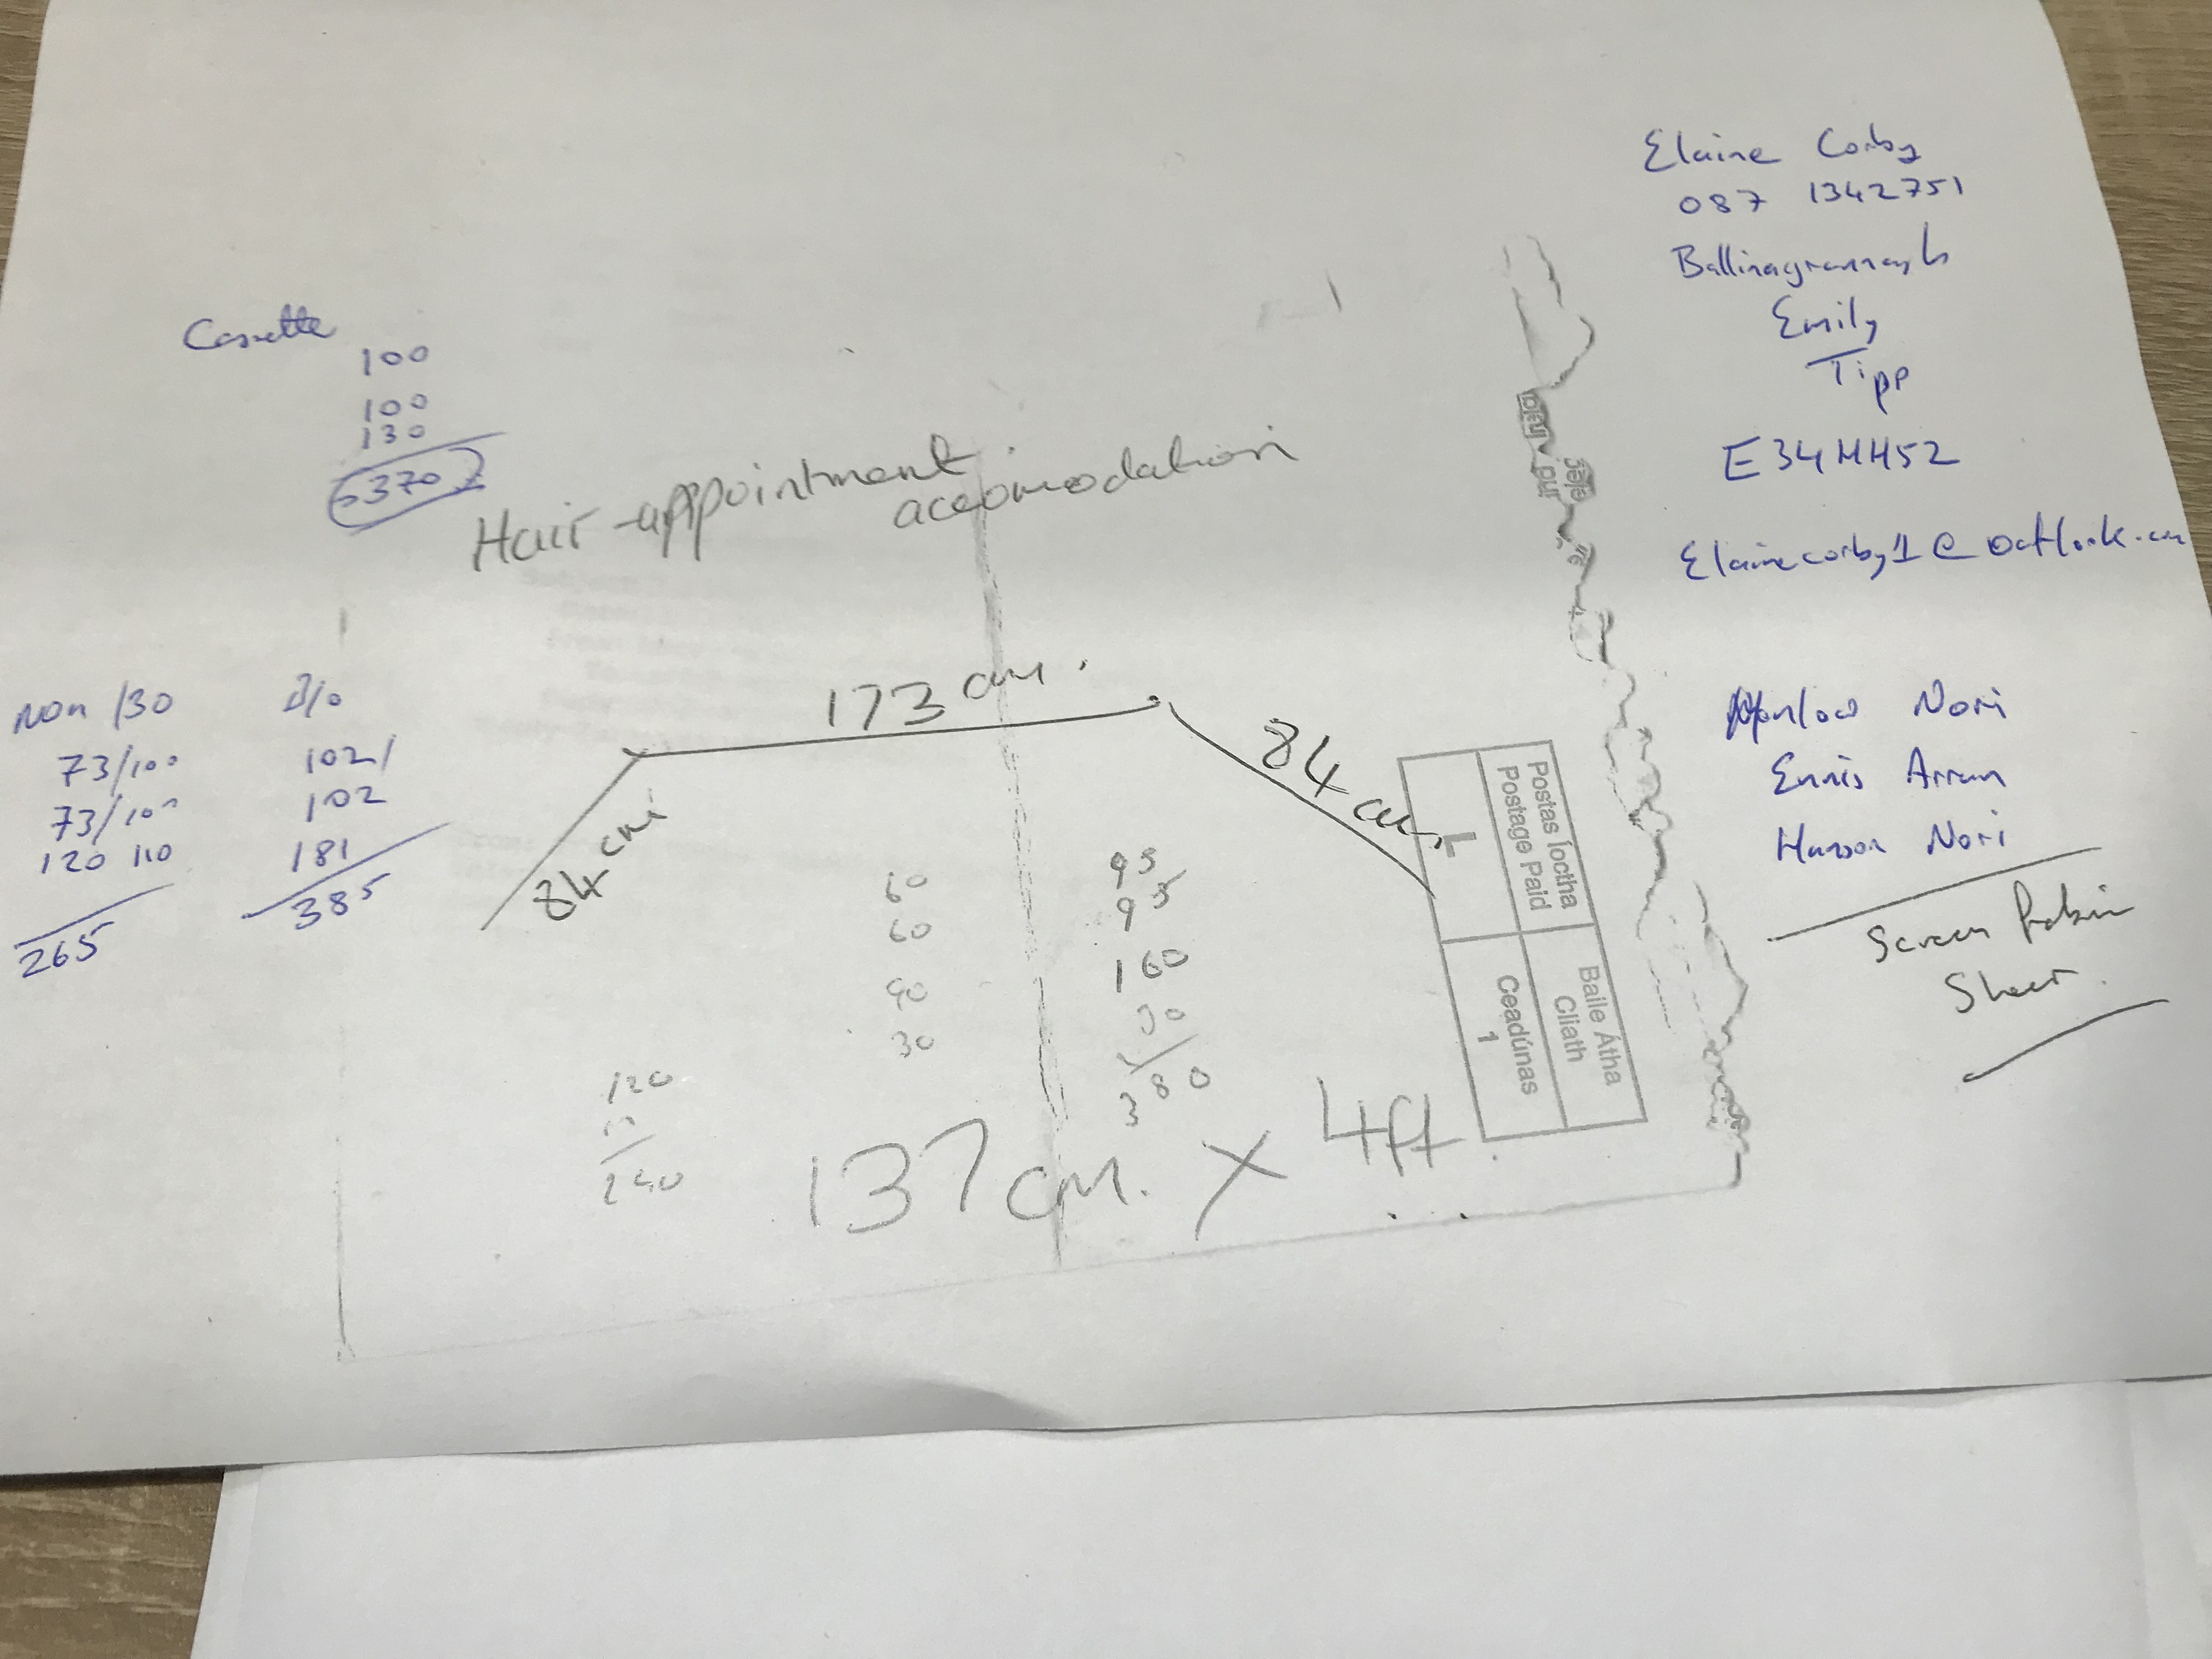 Elaine Corby
087 1342751
Ballinagrannagh
Emily
Tipp
E34HH52
Elainecorby1@outlook.com
Casette
100
100
130
370
Hair appointment
accomodation
Non /30
73/100
73/100
120 110
265
B/o
102/
102
181
385
173 cm.
84 cm
84 cm
60
60
90
30
95
95
160
30
380
120
240
137 cm. X 4ft
Postas Íoctha
Postage Paid
Baile Átha
Cliath
Ceadúnas
1
Nori
Ennis Arran
Nori
Screen
Sheet.